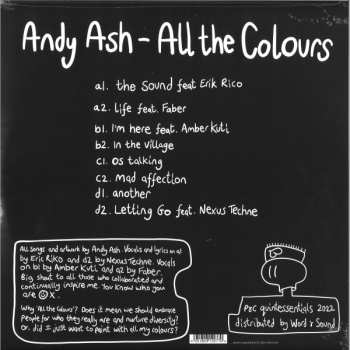 Andy Ash - All the Colours
a1. the Sound feat Erik Rico
a2. Life feat. Faber
b1. I'm here feat. Amber Kuti
b2. In the village
c1. os talking
c2. Mad affection
d1. another
d2. Letting Go feat. Nexus Techne
All songs and artwork by Andy Ash. Vocals and lyrics on a1
by Eric Riko and d2 by Nexus Techne. Vocals
on b1 by Amber Kuti and a2 by Faber.
Big shout to all those who collaborated and
continually inspire me. You know who you
are X
Why 'All the Colours'? Does it mean we should embrace
people for who they really are and nurture diversity?
Or, did I just want to paint with all my colours?
quintessentials 2022
distributed by Word & Sound